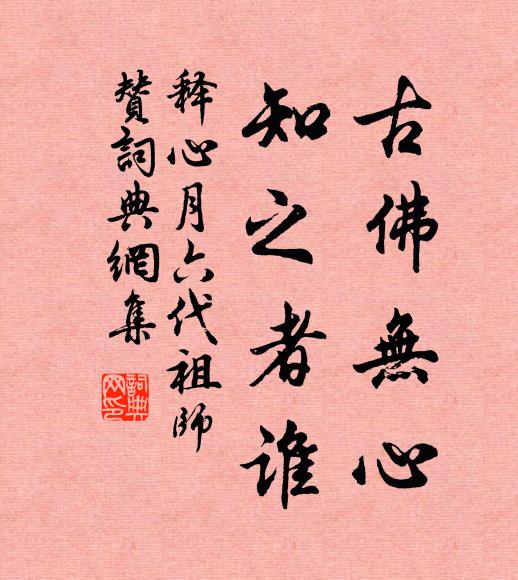 古佛無心
知之者誰
释心月六代祖师
賛詞典網集
詞典网印